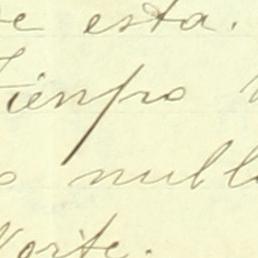 e esta.
Tienpo
nubl
Norte.